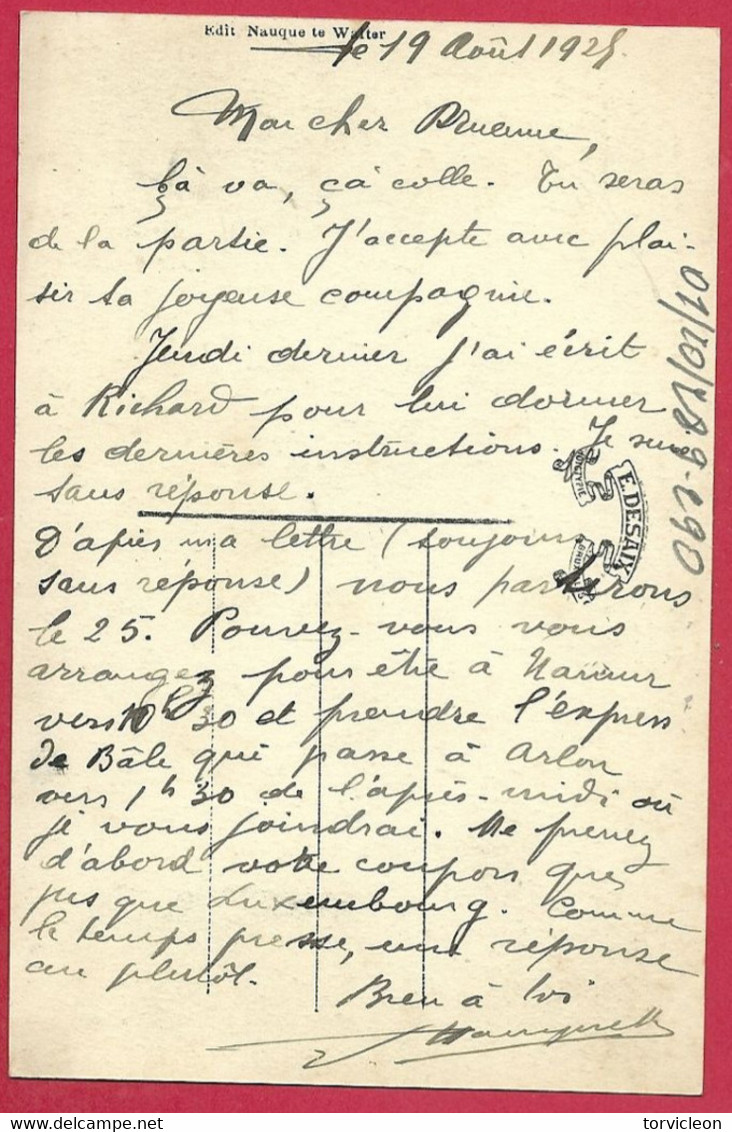 Edit Nauque te Walter
le 19 Août 192
Mon cher
Çà va, çà colle. Tu seras
de la partie. J'accepte avec plai-
sir ta joyeuse compagnie.
Jeudi dernier j'ai écrit
à Richard pour lui donner
les dernières instructions. Je suis
sans réponse.
D'après ma lettre (toujours
sans réponse) nous partirons
le 25. Pouvez-vous vous
arrangez pour être à Namur
vers 10h30 et prendre l'express
de Bâle qui passe à Arlon
vers 1h30 de l'après-midi où
je vous joindrai. Ne prenez
d'abord votre coupon que
jusque Luxembourg. Comme
le temps presse, une réponse
au plutôt.
Bien à toi
E. DESAIX